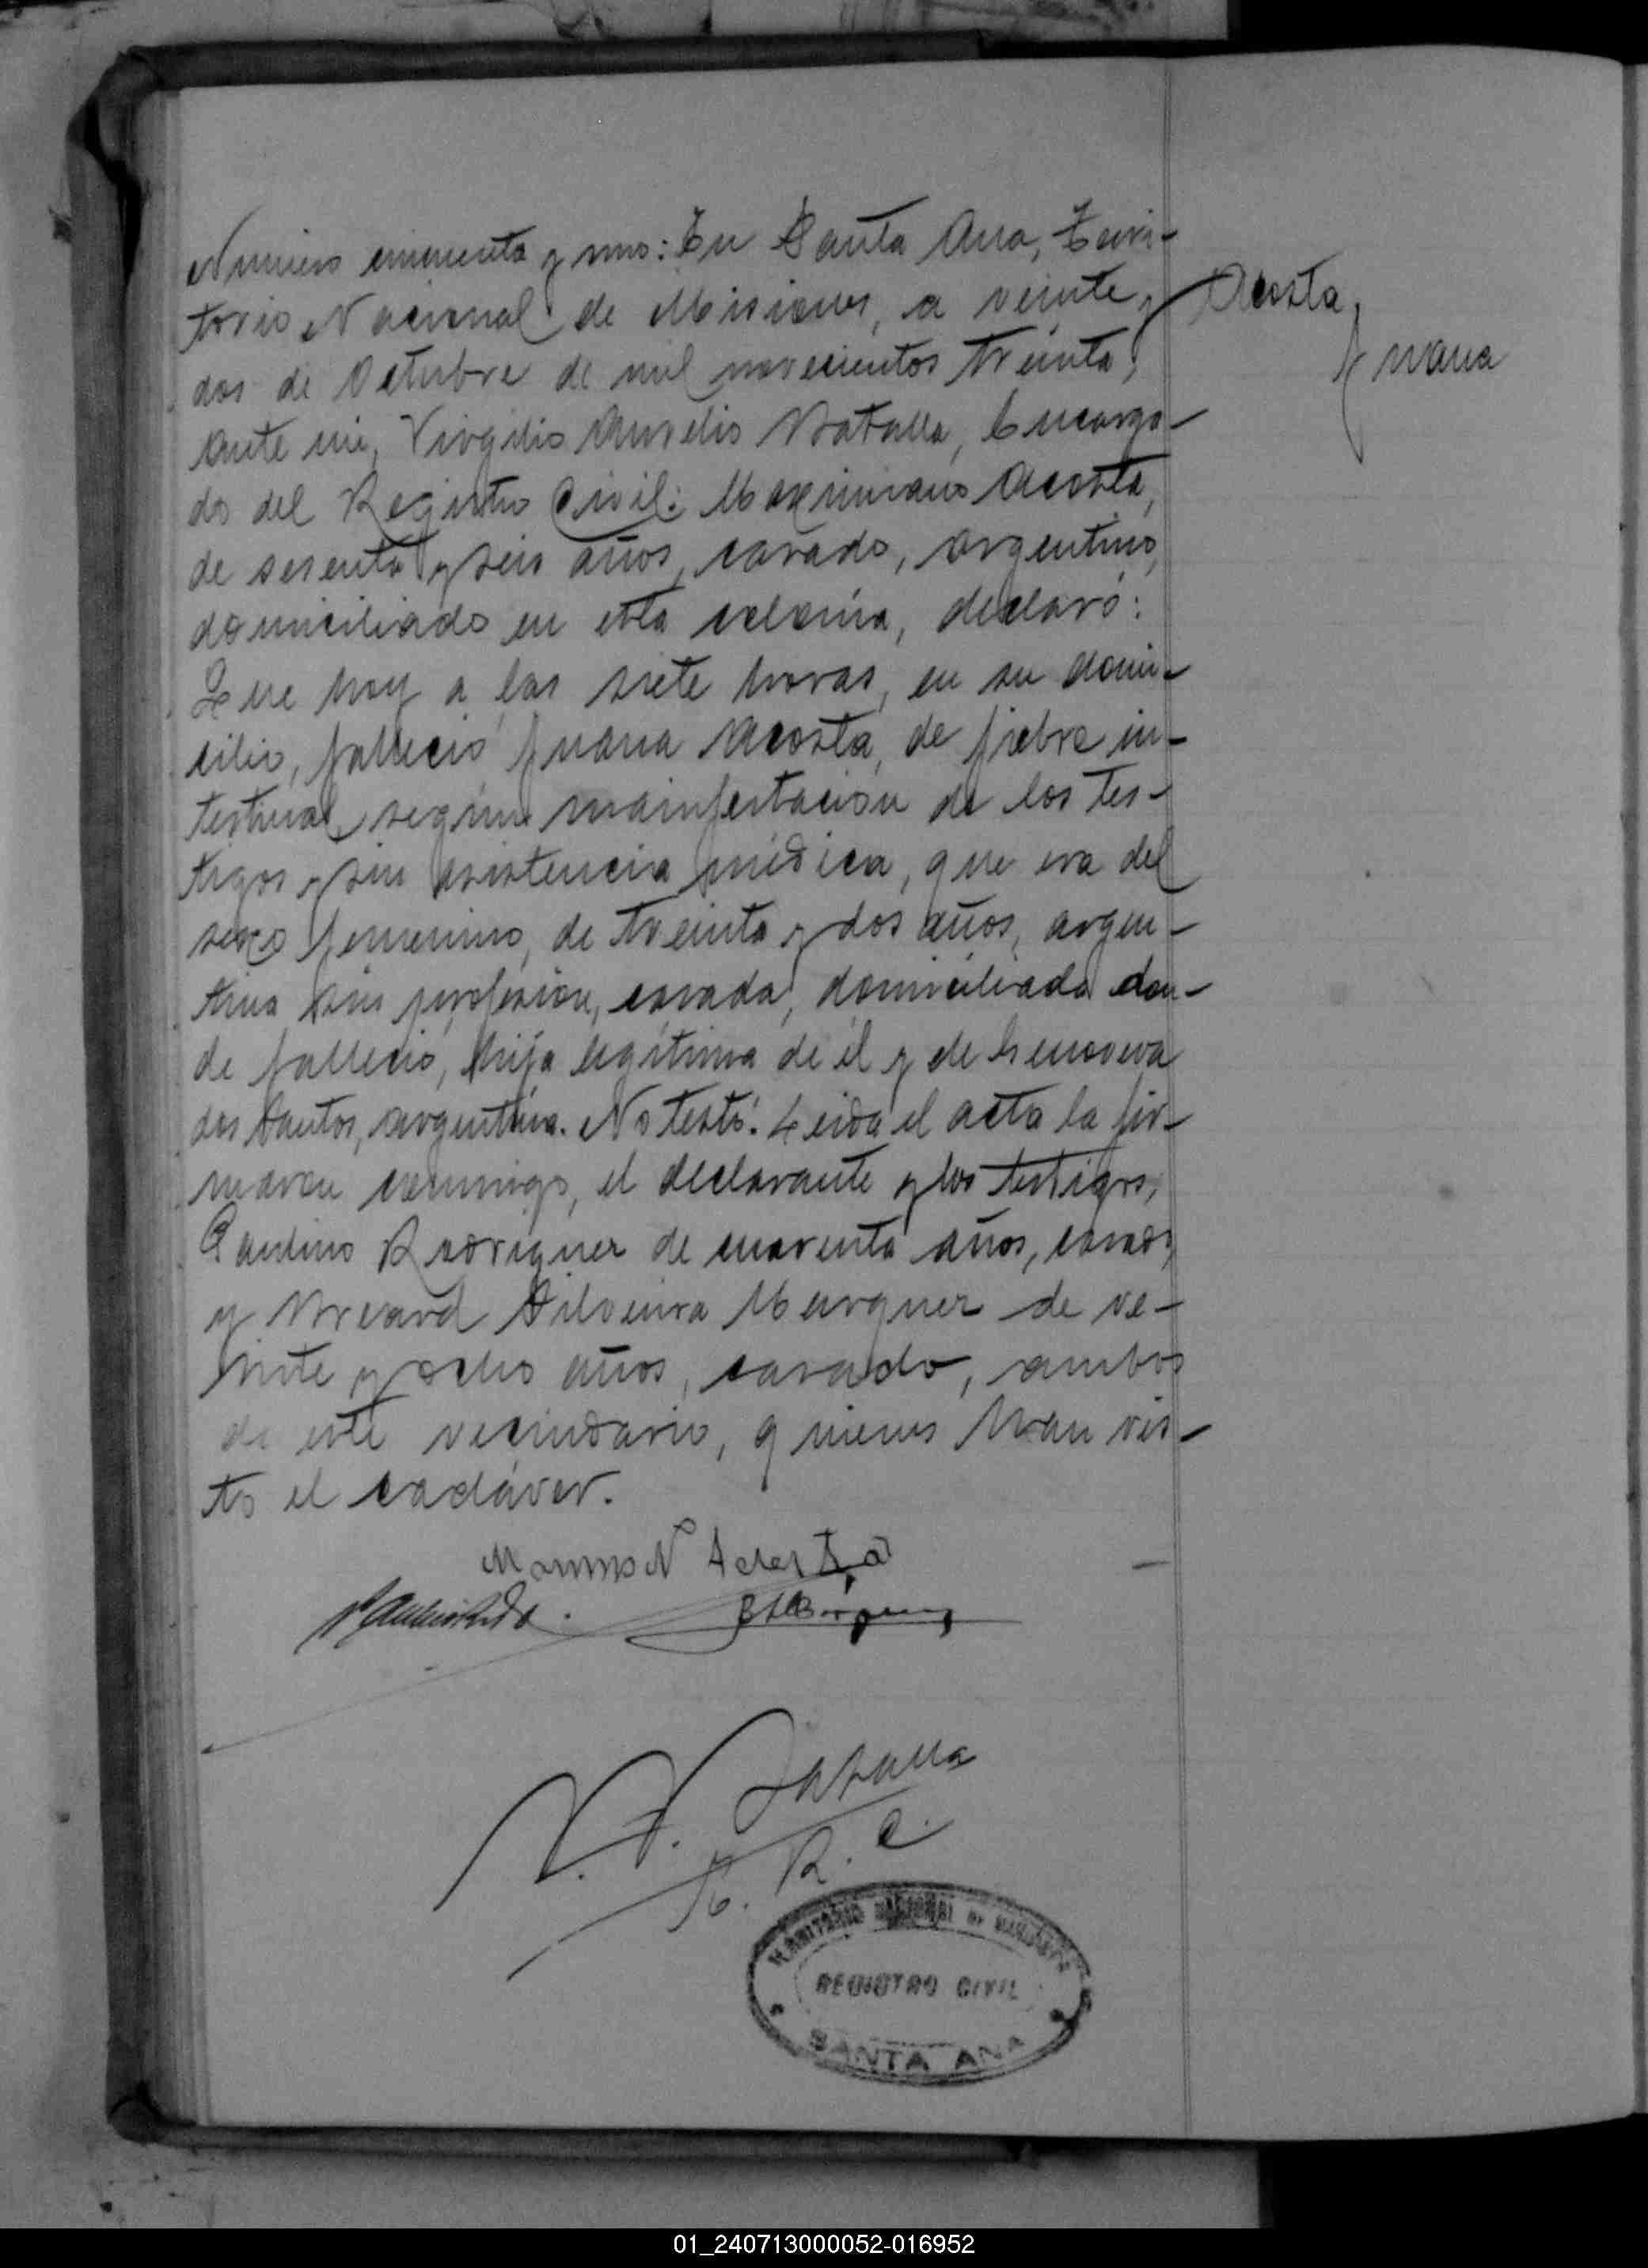 Número cincuenta y uno: En Santa Ana, Terri-
torio Nacional de Misiones, a veinte y
dos de Octubre de mil novecientos treinta,
ante mi, Virgilio Aurelio Batalla, Encarga-
do del Registro Civil: Maximiano Acosta,
de sesenta y seis años, casado, argentino,
domiciliado en esta colonia, declaró:
Que hoy a las siete horas, en su domi-
cilio, falleció Juana Acosta, de fiebre in-
testinal, según manifestación de los tes-
tigos y sin asistencia médica, que era del
sexo femenino, de treinta y dos años, argen-
tina sin profesión, casada, domiciliada don-
de falleció, hija legítima de él y de Genoveva
dos Santos, argentina. No testó. Leida el acta la fir-
maron conmigo, el declarante y los testigos,
Paulino Rodriguez de cuarenta años, casado,
y Silveira Marquez de ve-
inte y ocho años, casado, ambos
de este vecindario, quienes han vis-
to el cadáver.
Acosta,
Juana
Acosta
V. A. Batalla
E. R. C.
TERRITORIO NACIONAL DE MISIONES
REGISTRO CIVIL
SANTA ANA
01_240713000052-016952